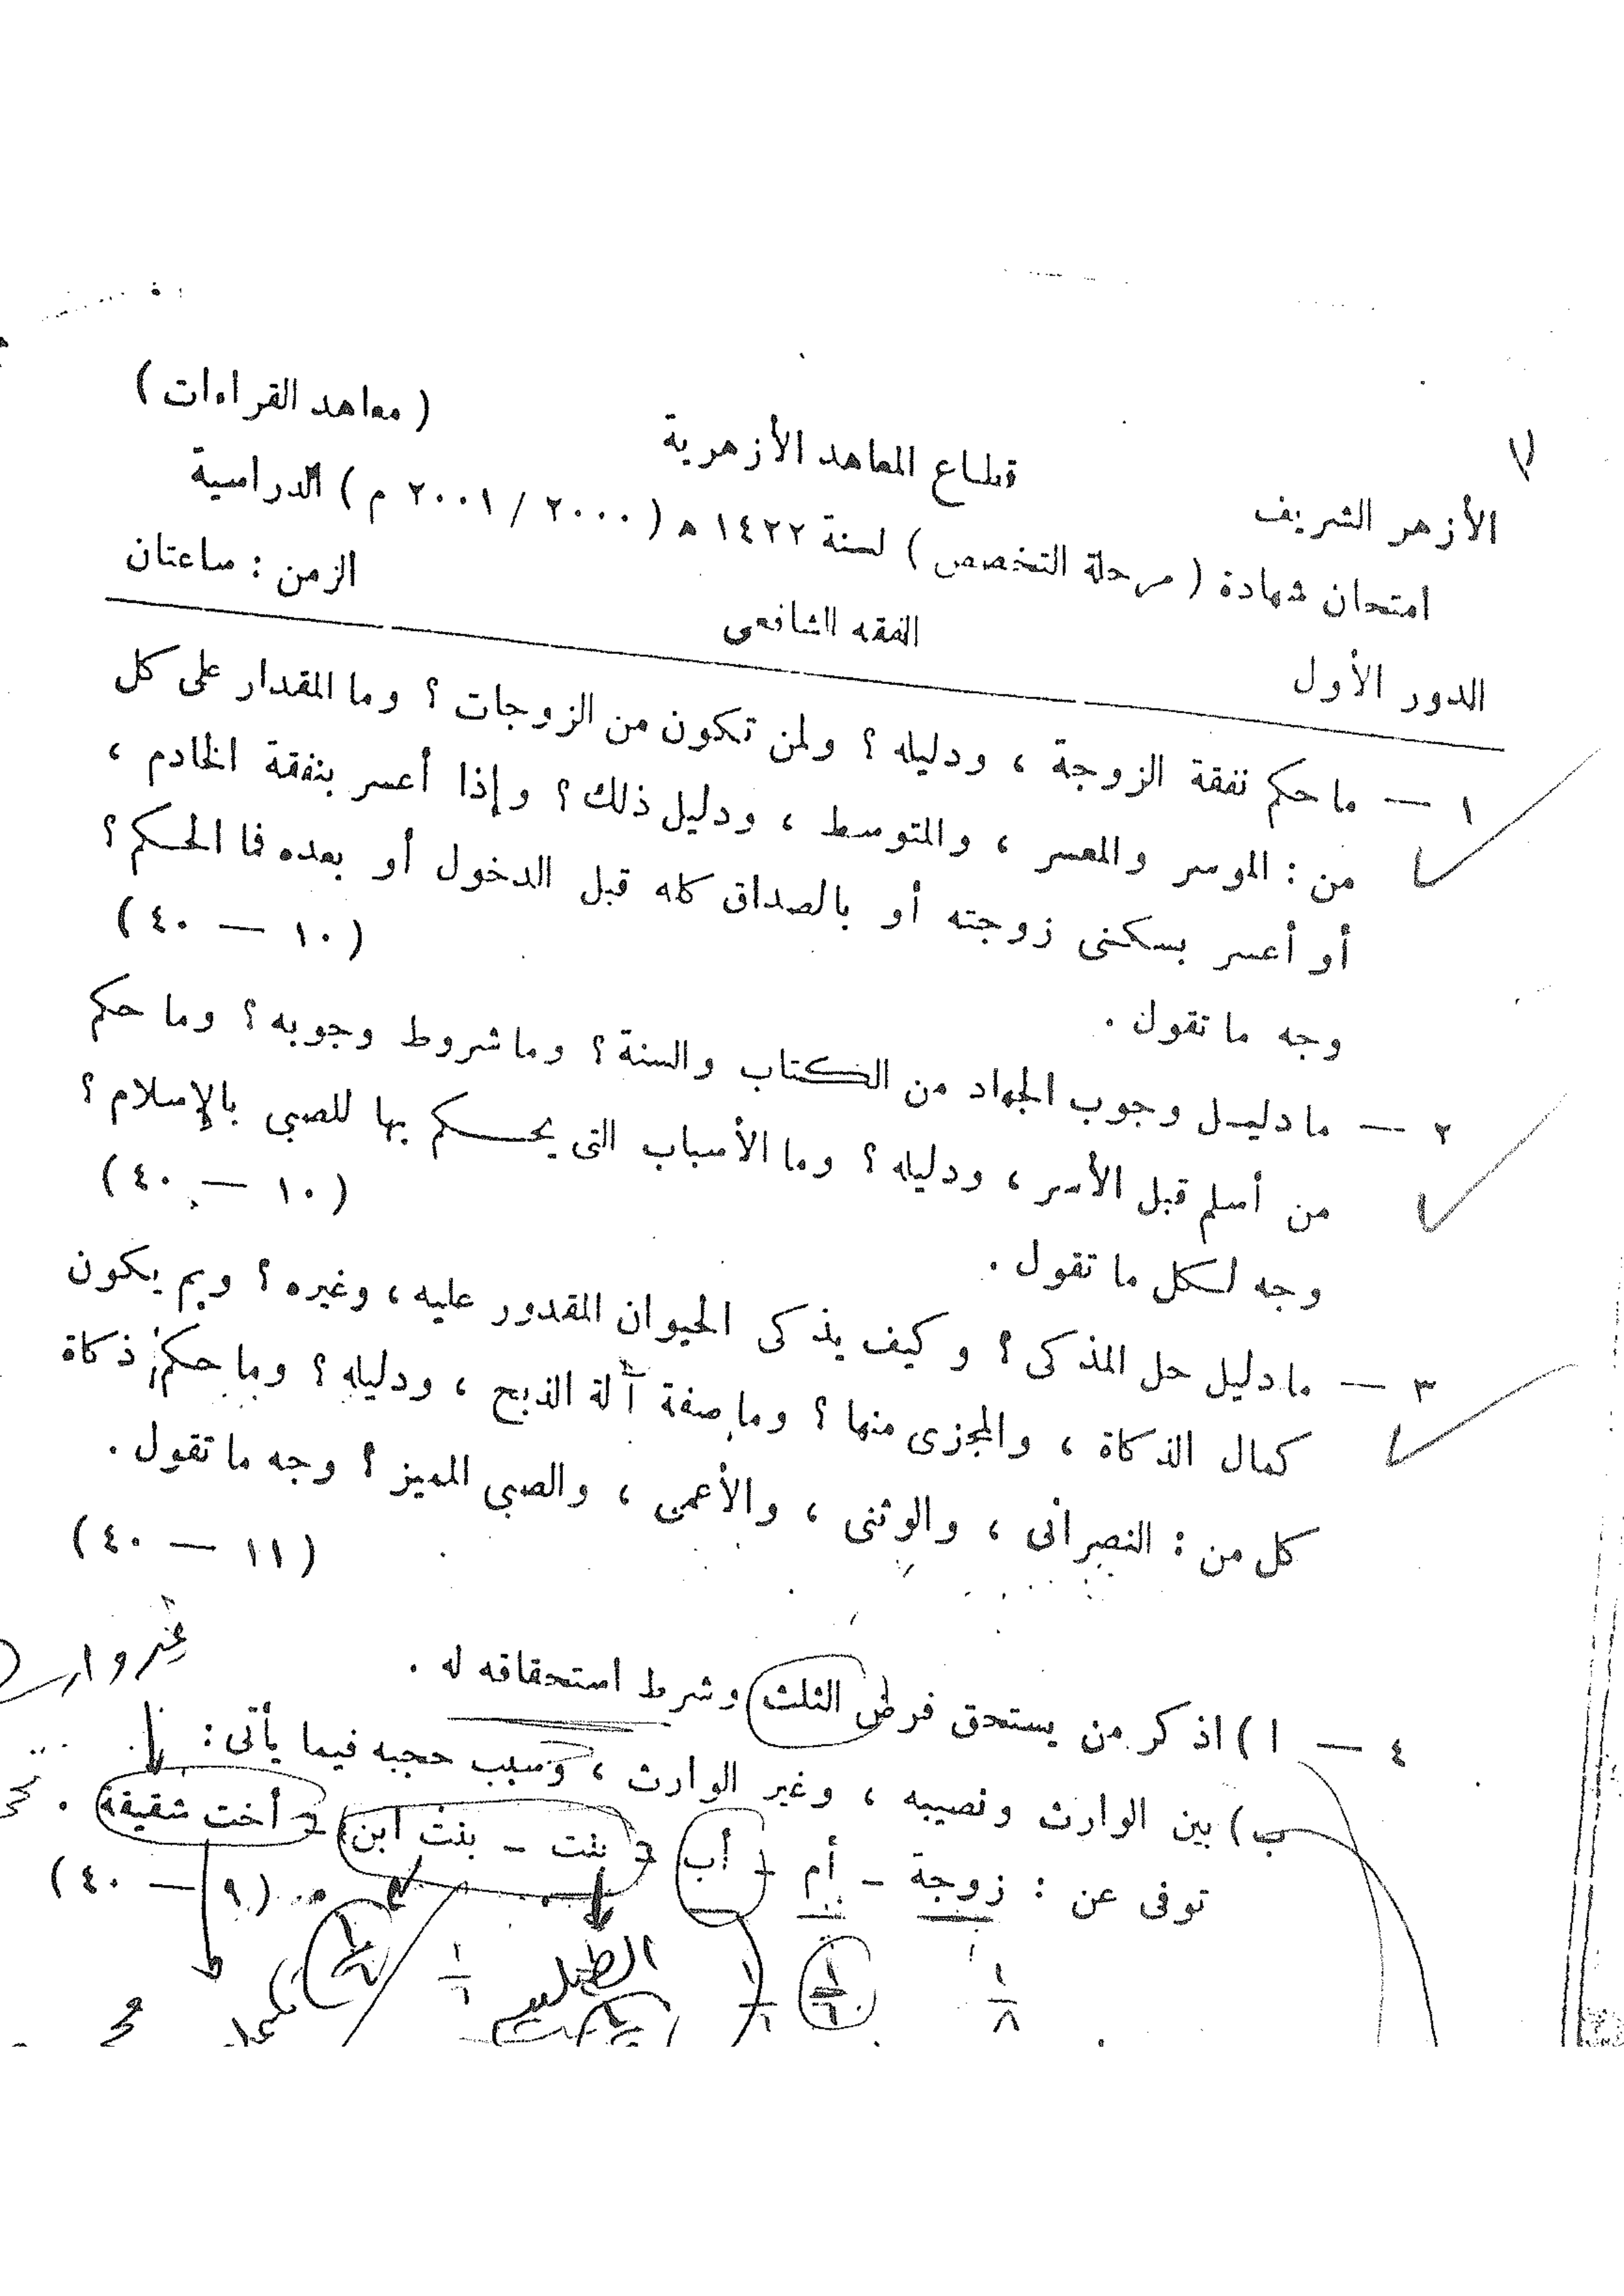 ( معاهد القراءات )
قطاع المعاهد الأزهرية
الأزهر الشريف
امتحان شهادة ( مرحلة التخصص ) لسنة ١٤٢٢ هـ ( ٢٠٠٠ / ٢٠٠١ م ) الدراسية
الدور الأول الفقه الشافعى الزمن : ساعتان
١ — ما حكم نفقة الزوجة ، ودليله ؟ ولمن تكون من الزوجات ؟ وما المقدار على كل
من : الموسر والمعسر ، والمتوسط ، ودليل ذلك ؟ وإذا أعسر بنفقة الخادم ،
أو أعسر بسكنى زوجته أو بالصداق كله قبل الدخول أو بعده فما الحكم ؟
وجه ما تقول . ( ١٠ — ٤٠ )
٢ — ما دليل وجوب الجهاد من الكتاب والسنة ؟ وما شروط وجوبه ؟ وما حكم
من أسلم قبل الأسر ، ودليله ؟ وما الأسباب التى يحكم بها للصبى بالإسلام ؟
وجه لكل ما تقول . ( ١٠ — ٤٠ )
٣ — ما دليل حل المذكى ؟ وكيف يذكى الحيوان المقدور عليه ، وغيره ؟ وبم يكون
كمال الذكاة ، والمجزى منها ؟ وما صفة آلة الذبح ، ودليله ؟ وما حكم ذكاة
كل من : النصرانى ، والوثنى ، والأعمى ، والصبى المميز ؟ وجه ما تقول .
( ١١ — ٤٠ )
٤ — ا ) اذكر من يستحق فرض الثلث وشرط استحقاقه له .
ب) بين الوارث ونصيبه ، وغير الوارث ، وسبب حجبه فيما يأتى :
توفى عن : زوجة - أم - أب - بنت - بنت ابن - أخت شقيقة .
( ٩ — ٤٠ )
١/٨ ١/٦ ١/٦ ١/٦